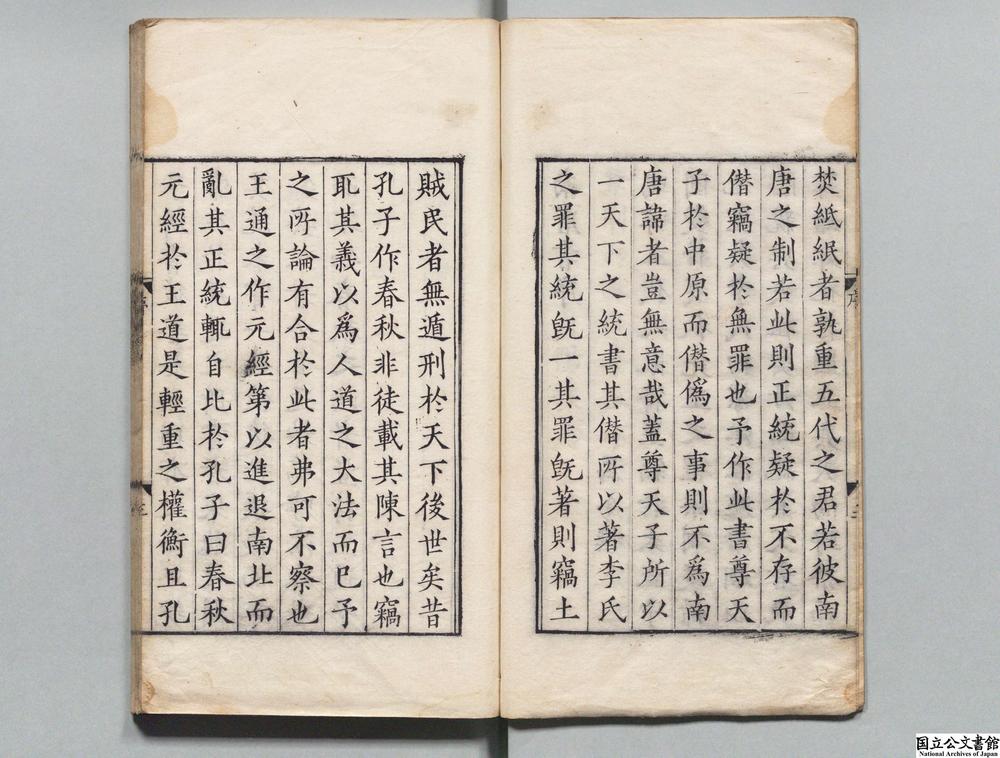 焚紙紙者孰重五代之君若彼南
唐之制若此則正統疑於不存而
僣竊疑於無罪也予作此書尊天
子於中原而僣僞之事則不爲南
唐諱者豈無意哉蓋尊天子所以
一天下之統書其僣所以著李氏
之罪其統旣一其罪旣著則竊土
賊民者無遁刑於天下後世矣昔
孔子作春秋非徒載其陳言也竊
耴其義以爲人道之大法而已予
之所論有合於此者弗可不察也
王通之作元經第以進退南北而
亂其正統輒自比於孔子曰春秋
元經於王道是輕重之權衡且孔
国立公文書館
National Archives of Japan